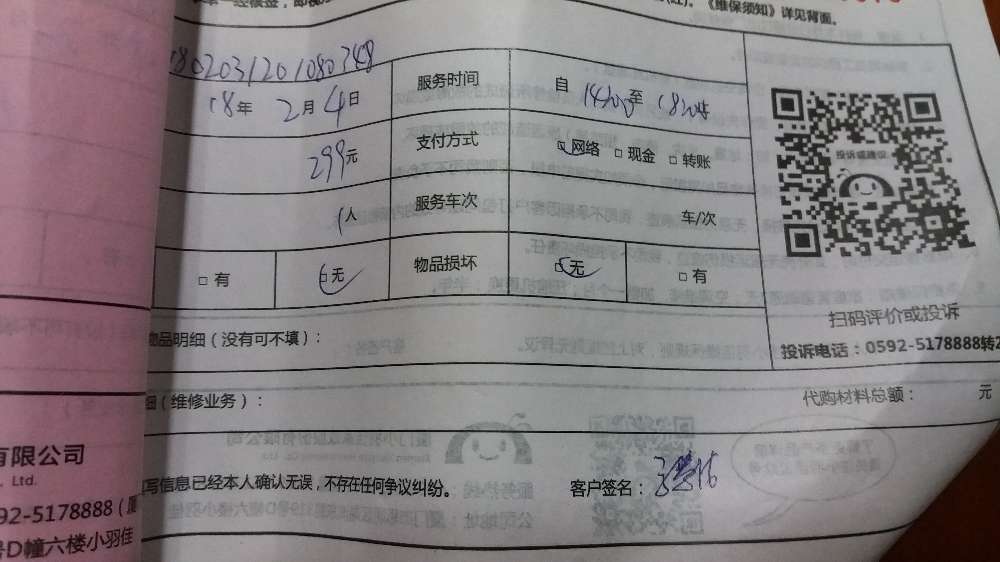 《维保须知》详见背面。
1802031201080348 服务时间 自 14:00 至 18:00
18年 2月4日
299元 支付方式 网络 □ 现金 □ 转账
投诉或建议
1人 服务车次 车/次
□ 有 □ 无 物品损坏 □ 无 □ 有
扫码评价或投诉
物品明细（没有可不填）：
投诉电话：0592-5178888转2
细（维修业务）： 代购材料总额： 元
有限公司
., Ltd.
写信息已经本人确认无误，不存在任何争议纠纷。 客户签名：
92-5178888（厦
号D幢六楼小羽佳